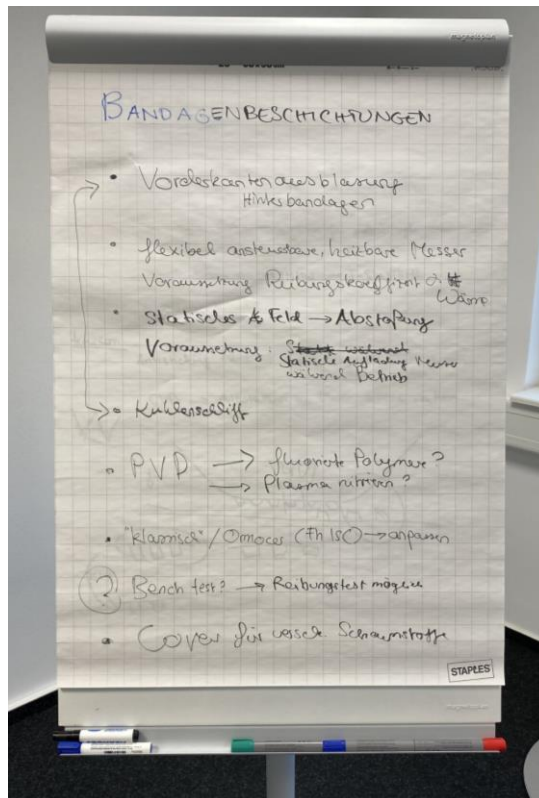 BANDAGENBESCHICHTUNGEN
• Vorderkantenausblasung
Hinterbandagen
• flexibel ansteuerbare, heizbare Messer
Voraussetzung Reibungskoeffizient
Wärme
• Statisches Feld → Abstoßung
Voraussetzung:
Statische Aufladung Messer
während Betrieb
• Kuhlenschliff
• PVD → fluorierte Polymere?
→ Plasma nitrieren?
• "klassisch" / Omocer (Fh ISC) → anpassen
? Bench test? → Reibungstest möglich
• Cover für versch Schaumstoffe
STAPLES